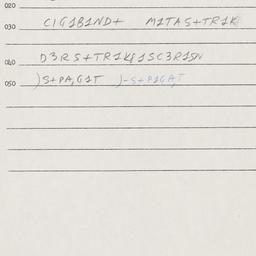 020
030 C1G1B1ND+ M1TAS+TR1K
040 D3RS+TR1K§1SC3R1SN
050 )S+PA,G1T )-S+P1GAT